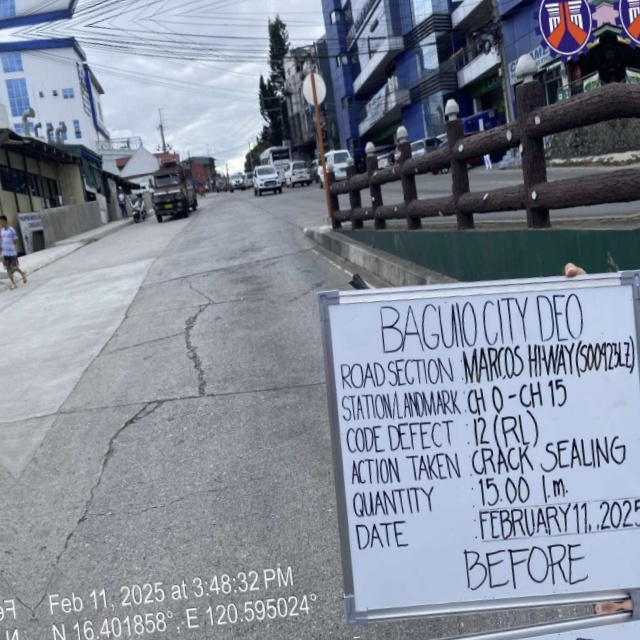 BAGUIO CITY DEO
ROAD SECTION : MARCOS HIWAY (S00423LZ)
STATION/LANDMARK : CH 0 - CH 15
CODE DEFECT : 12 (RL)
ACTION TAKEN : CRACK SEALING
QUANTITY : 15.00 l.m.
DATE : FEBRUARY 11, 2025
BEFORE
Feb 11, 2025 at 3:48:32 PM
N 16.401858°, E 120.595024°